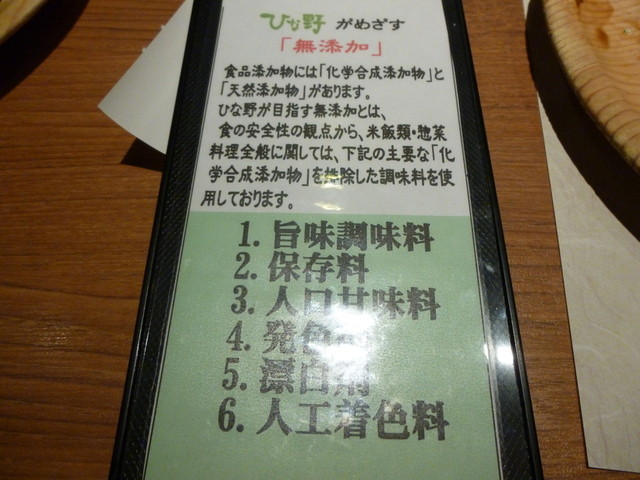 ひな野 がめざす
「無添加」
食品添加物には「化学合成添加物」と
「天然添加物」があります。
ひな野が目指す無添加とは、
食の安全性の観点から、米飯類・惣菜
料理全般に関しては、下記の主要な「化
学合成添加物」を排除した調味料を使
用しております。
1. 旨味調味料
2. 保存料
3. 人口甘味料
4. 発色
5. 漂白剤
6. 人工着色料